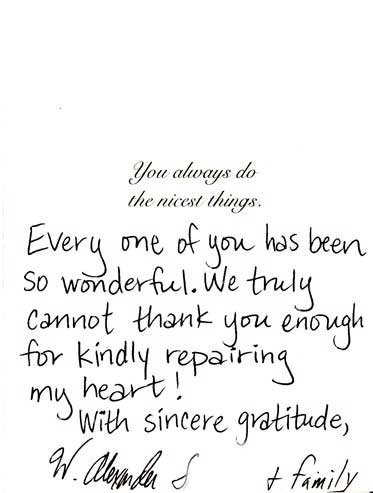 You always do
the nicest things.
Every one of you has been
so wonderful. We truly
cannot thank you enough
for kindly repairing
my heart!
With sincere gratitude,
W. Alexander S
+ family